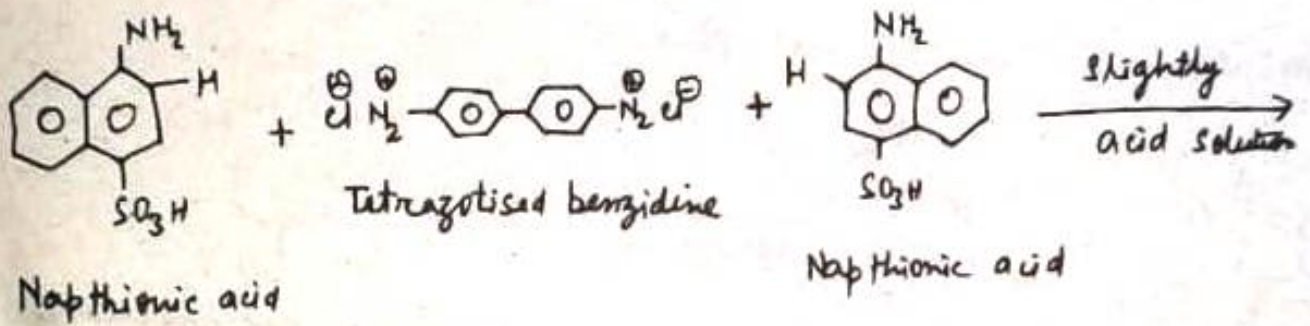 NH₂
H
SO₃H
Napthionic acid
+
Cl⊖ N₂⊕
N₂⊕ Cl⊖
Tetrazotised benzidine
+
NH₂
H
SO₃H
Napthionic acid
Slightly
acid solution